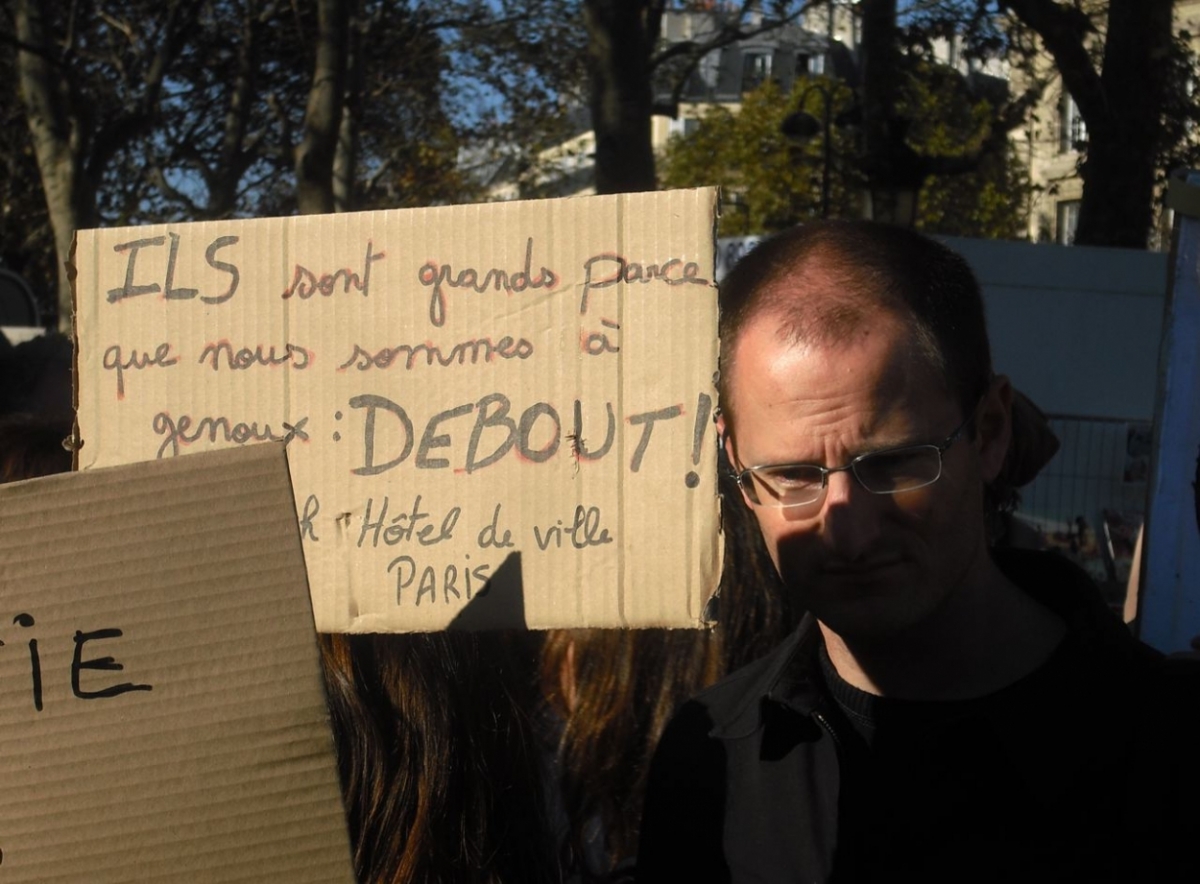 ILS sont grands parce
que nous sommes à
genoux : DEBOUT !
h Hôtel de ville
PARIS
IE